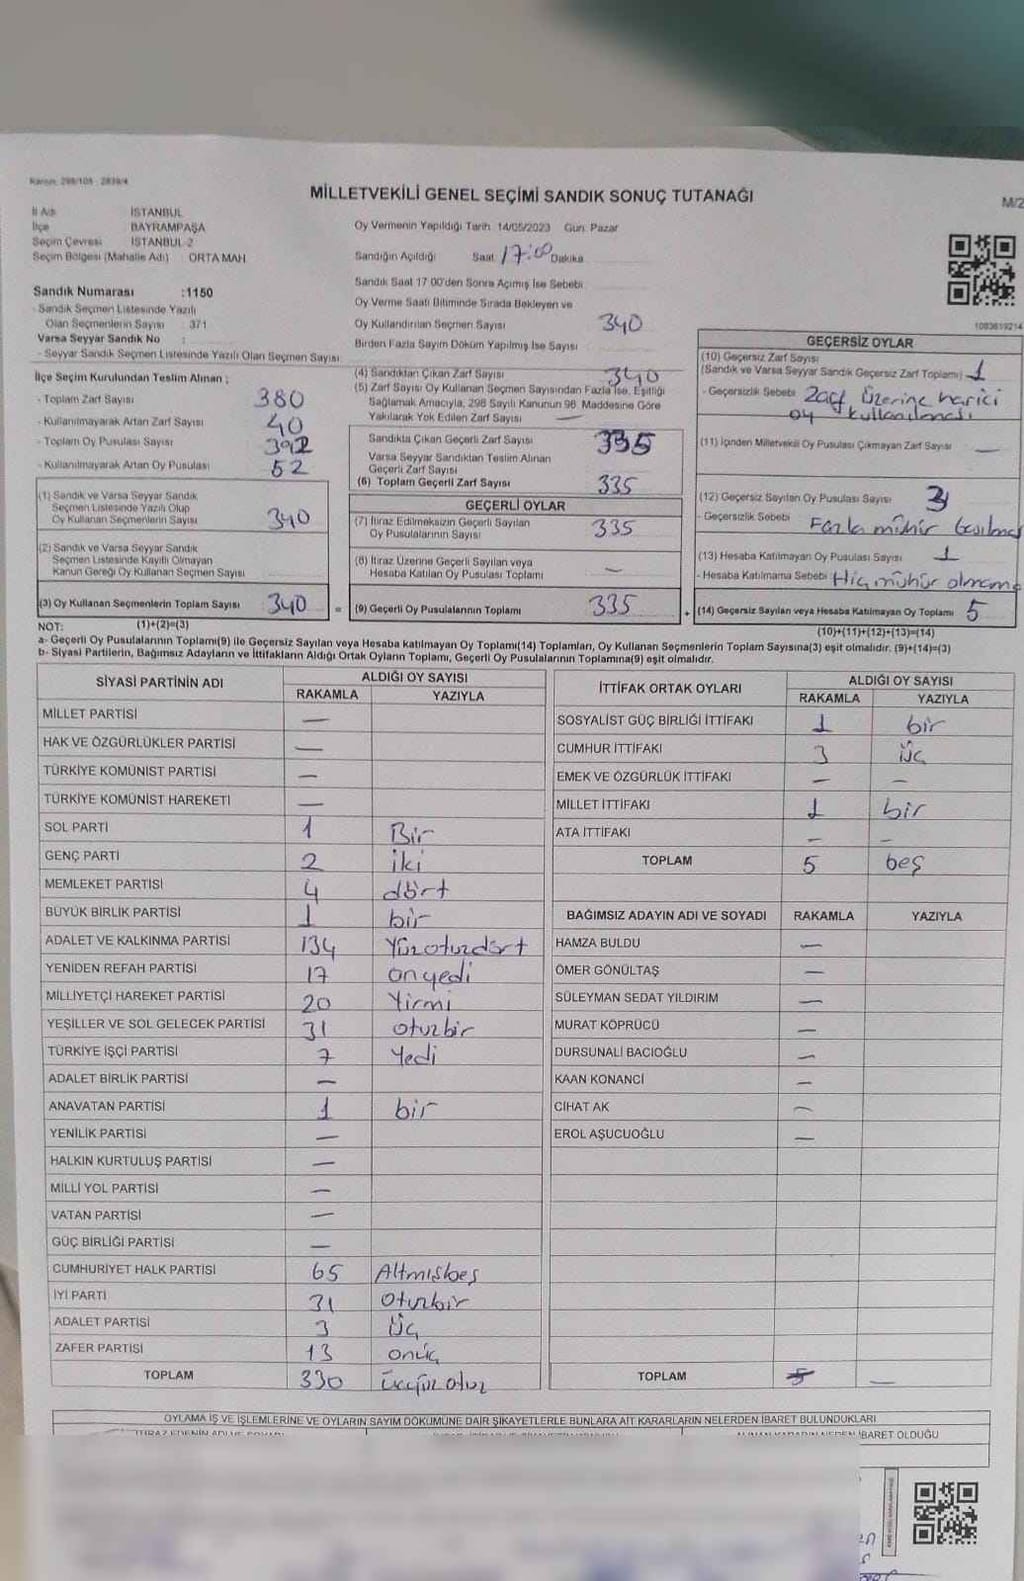 Kanun: 298/105 - 2839/4
MİLLETVEKİLİ GENEL SEÇİMİ SANDIK SONUÇ TUTANAĞI
M/2
İl Adı İSTANBUL
İlçe BAYRAMPAŞA
Seçim Çevresi İSTANBUL-2
Seçim Bölgesi (Mahalle Adı) ORTA MAH.
Sandık Numarası :1150
- Sandık Seçmen Listesinde Yazılı
Olan Seçmenlerin Sayısı : 371
Varsa Seyyar Sandık No :
- Seyyar Sandık Seçmen Listesinde Yazılı Olan Seçmen Sayısı
Oy Vermenin Yapıldığı Tarih 14/05/2023 Gün: Pazar
Sandığın Açıldığı Saat 17:00 Dakika
Sandık Saat 17:00'den Sonra Açılmış İse Sebebi
Oy Verme Saati Bitiminde Sırada Bekleyen ve
Oy Kullandırılan Seçmen Sayısı 340
Birden Fazla Sayım Döküm Yapılmış İse Sayısı
1083619214
İlçe Seçim Kurulundan Teslim Alınan ;
- Toplam Zarf Sayısı 380
- Kullanılmayarak Artan Zarf Sayısı 40
- Toplam Oy Pusulası Sayısı 392
- Kullanılmayarak Artan Oy Pusulası 52
(1) Sandık ve Varsa Seyyar Sandık
Seçmen Listesinde Yazılı Olup
Oy Kullanan Seçmenlerin Sayısı 340
(2) Sandık ve Varsa Seyyar Sandık
Seçmen Listesinde Kayıtlı Olmayan
Kanun Gereği Oy Kullanan Seçmen Sayısı
(3) Oy Kullanan Seçmenlerin Toplam Sayısı 340 =
(4) Sandıktan Çıkan Zarf Sayısı 340
(5) Zarf Sayısı Oy Kullanan Seçmen Sayısından Fazla İse, Eşitliği
Sağlamak Amacıyla, 298 Sayılı Kanunun 98. Maddesine Göre
Yakılarak Yok Edilen Zarf Sayısı —
Sandıkta Çıkan Geçerli Zarf Sayısı 335
Varsa Seyyar Sandıktan Teslim Alınan
Geçerli Zarf Sayısı
(6) Toplam Geçerli Zarf Sayısı 335
GEÇERLİ OYLAR
(7) İtiraz Edilmeksizin Geçerli Sayılan
Oy Pusulalarının Sayısı 335
(8) İtiraz Üzerine Geçerli Sayılan veya
Hesaba Katılan Oy Pusulası Toplamı —
(9) Geçerli Oy Pusulalarının Toplamı 335 +
GEÇERSİZ OYLAR
(10) Geçersiz Zarf Sayısı
(Sandık ve Varsa Seyyar Sandık Geçersiz Zarf Toplamı) 1
- Geçersizlik Sebebi Zarf üzerine harici
oy kullanılması
(11) İçinden Milletvekili Oy Pusulası Çıkmayan Zarf Sayısı —
(12) Geçersiz Sayılan Oy Pusulası Sayısı 3
- Geçersizlik Sebebi Fazla mühür basılması
(13) Hesaba Katılmayan Oy Pusulası Sayısı 1
- Hesaba Katılmama Sebebi Hiç mühür olmama
(14) Geçersiz Sayılan veya Hesaba Katılmayan Oy Toplamı 5
NOT: (1)+(2)=(3)
(10)+(11)+(12)+(13)=(14)
a- Geçerli Oy Pusulalarının Toplamı(9) ile Geçersiz Sayılan veya Hesaba katılmayan Oy Toplamı(14) Toplamları, Oy Kullanan Seçmenlerin Toplam Sayısına(3) eşit olmalıdır. (9)+(14)=(3)
b- Siyasi Partilerin, Bağımsız Adayların ve İttifakların Aldığı Ortak Oyların Toplamı, Geçerli Oy Pusulalarının Toplamına(9) eşit olmalıdır.
SİYASİ PARTİNİN ADI ALDIĞI OY SAYISI
RAKAMLA YAZIYLA
MİLLET PARTİSİ —
HAK VE ÖZGÜRLÜKLER PARTİSİ —
TÜRKİYE KOMÜNİST PARTİSİ —
TÜRKİYE KOMÜNİST HAREKETİ —
SOL PARTİ 1 Bir
GENÇ PARTİ 2 iki
MEMLEKET PARTİSİ 4 dört
BÜYÜK BİRLİK PARTİSİ 1 bir
ADALET VE KALKINMA PARTİSİ 134 Yüzotuzdört
YENİDEN REFAH PARTİSİ 17 onyedi
MİLLİYETÇİ HAREKET PARTİSİ 20 Yirmi
YEŞİLLER VE SOL GELECEK PARTİSİ 31 otuzbir
TÜRKİYE İŞÇİ PARTİSİ 7 Yedi
ADALET BİRLİK PARTİSİ —
ANAVATAN PARTİSİ 1 bir
YENİLİK PARTİSİ —
HALKIN KURTULUŞ PARTİSİ —
MİLLİ YOL PARTİSİ —
VATAN PARTİSİ —
GÜÇ BİRLİĞİ PARTİSİ —
CUMHURİYET HALK PARTİSİ 65 Altmışbeş
İYİ PARTİ 31 Otuzbir
ADALET PARTİSİ 3 Üç
ZAFER PARTİSİ 13 onüç
TOPLAM 330 üçyüz otuz
İTTİFAK ORTAK OYLARI ALDIĞI OY SAYISI
RAKAMLA YAZIYLA
SOSYALİST GÜÇ BİRLİĞİ İTTİFAKI 1 bir
CUMHUR İTTİFAKI 3 Üç
EMEK VE ÖZGÜRLÜK İTTİFAKI — —
MİLLET İTTİFAKI 1 bir
ATA İTTİFAKI — —
TOPLAM 5 beş
BAĞIMSIZ ADAYIN ADI VE SOYADI RAKAMLA YAZIYLA
HAMZA BULDU —
ÖMER GÖNÜLTAŞ —
SÜLEYMAN SEDAT YILDIRIM —
MURAT KÖPRÜCÜ —
DURSUNALİ BACIOĞLU —
KAAN KONANCİ —
CİHAT AK —
EROL AŞUCUOĞLU —
TOPLAM 5 —
OYLAMA İŞ VE İŞLEMLERİNE VE OYLARIN SAYIM DÖKÜMÜNE DAİR ŞİKAYETLERLE BUNLARA AİT KARARLARIN NELERDEN İBARET BULUNDUKLARI
İTİRAZ EDENİN ADI VE SOYADI
ALINAN KARARIN NEDEN İBARET OLDUĞU